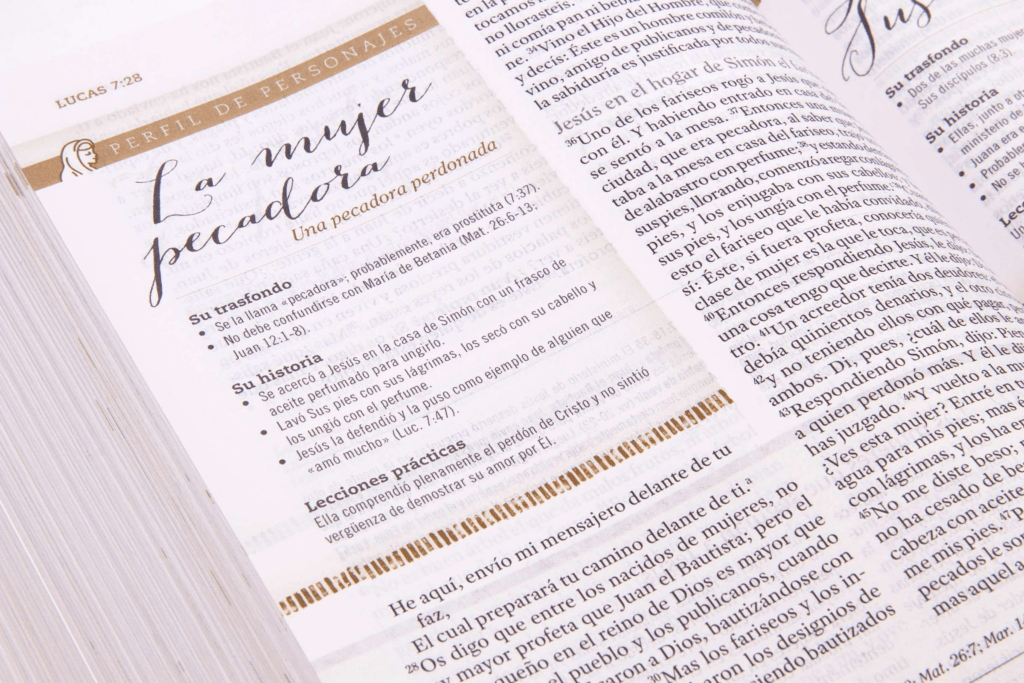 LUCAS 7:28
PERFIL DE PERSONAJES
La mujer
pecadora
Una pecadora perdonada
Su trasfondo
• Se la llama «pecadora»; probablemente, era prostituta (7:37).
• No debe confundirse con María de Betania (Mat. 26:6-13;
Juan 12:1-8).
Su historia
• Se acercó a Jesús en la casa de Simón con un frasco de
aceite perfumado para ungirlo.
• Lavó Sus pies con sus lágrimas, los secó con su cabello y
los ungió con el perfume.
• Jesús la defendió y la puso como ejemplo de alguien que
«amó mucho» (Luc. 7:47).
Lecciones prácticas
Ella comprendió plenamente el perdón de Cristo y no sintió
vergüenza de demostrar su amor por Él.
He aquí, envío mi mensajero delante de tu
faz,
El cual preparará tu camino delante de ti.a
28Os digo que entre los nacidos de mujeres, no
mayor profeta que Juan el Bautista; pero el
en el reino de Dios es mayor que
el pueblo y los publicanos, cuando
a Dios, bautizándose con
30Mas los fariseos y los in-
los designios de
bautizados
tocamos
no llorasteis.
ni comía pan ni
34Vino el Hijo del Hombre, que
y decís: Éste es un hombre comilón
vino, amigo de publicanos y de
la sabiduría es justificada por todos
Jesús en el hogar de Simón el
36Uno de los fariseos rogó a Jesús que
con él. Y habiendo entrado en casa
se sentó a la mesa. 37Entonces una
ciudad, que era pecadora, al saber
taba a la mesa en casa del fariseo,
de alabastro con perfume; 38y estando
sus pies, llorando, comenzó a regar con
pies, y los enjugaba con sus cabellos
sus pies, y los ungía con el perfume.
esto el fariseo que le había convidado
sí: Éste, si fuera profeta, conocería
clase de mujer es la que le toca, que
40Entonces respondiendo Jesús, le
una cosa tengo que decirte. Y él le
tro. 41Un acreedor tenía dos deudores:
debía quinientos denarios, y el otro
42y no teniendo ellos con qué pagar,
ambos. Di, pues, ¿cuál de ellos le
43Respondiendo Simón, dijo:
a quien perdonó más. Y él le
has juzgado. 44Y vuelto a la
¿Ves esta mujer? Entré en tu
agua para mis pies; mas
con lágrimas, y los ha
45No me diste beso;
no ha cesado de
cabeza con aceite
me mis pies. 47
pecados le
mas aquel a
Mat. 26:7; Mar.
Su trasfondo
• Dos de las muchas
Sus discípulos (8:3).
Su historia
• Ellas, junto a
ministerio de
• Juana
• No se